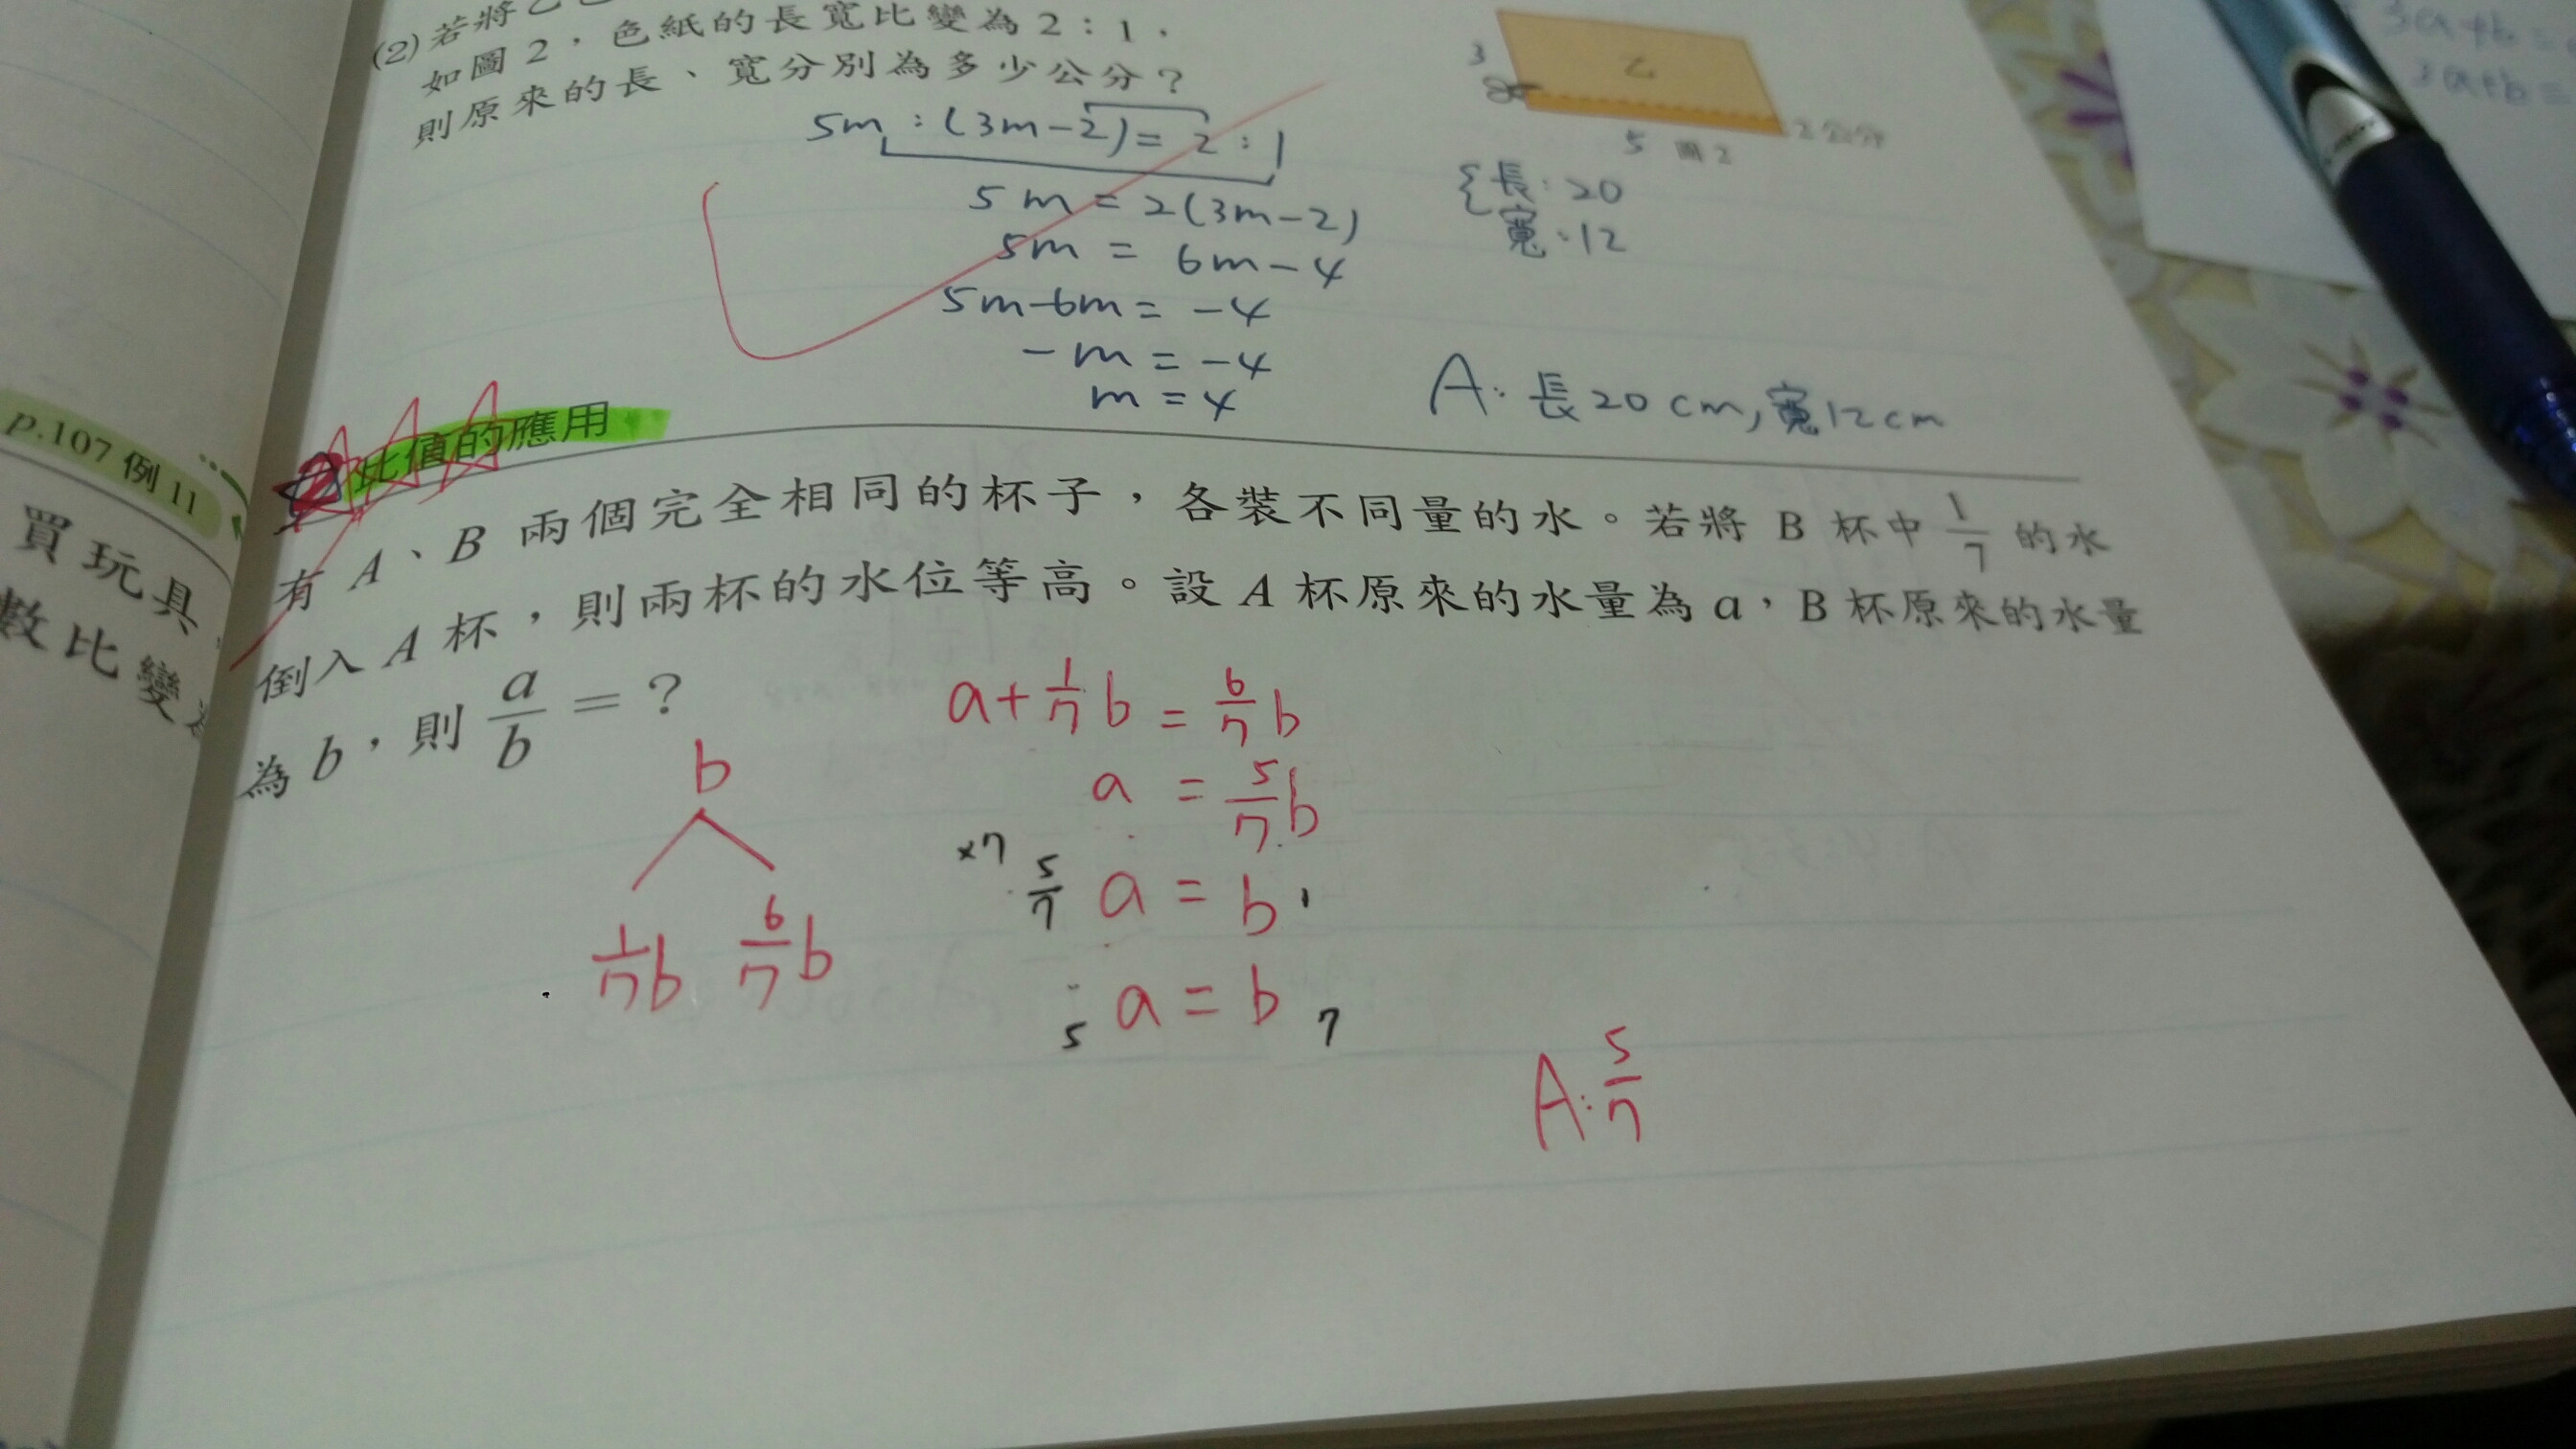 (2)若將乙
如圖2,色紙的長寬比變為2:1,
則原來的長、寬分別為多少公分?
3
乙
5 圖2
2公分
5m:(3m-2)=2:1
5m=2(3m-2)
5m=6m-4
5m-6m=-4
-m=-4
m=4
{長:20
寬:12
A:長20cm,寬12cm
3a+b=
3a+b=
p.107 例11
買玩具
數比變
比值的應用
有A、B兩個完全相同的杯子,各裝不同量的水。若將B杯中1/7的水
倒入A杯,則兩杯的水位等高。設A杯原來的水量為a,B杯原來的水量
為b,則a/b=?
b
1/7b 6/7b
a+1/7b=6/7b
a=5/7b
×7 5/7 a=b 1
5 a=b 7
A:5/7